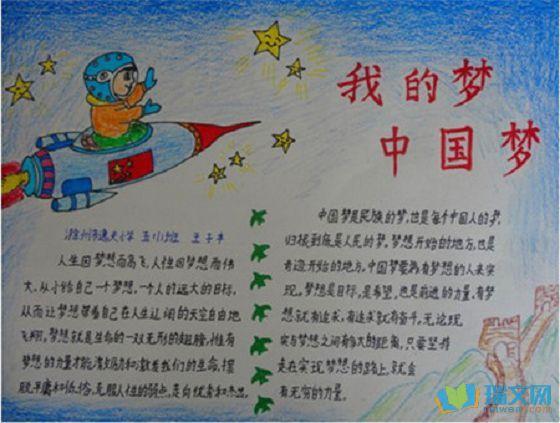 我的梦
中国梦
人生因梦想而高飞,人性因梦想而伟
大,从小给自己一个梦想,一个人的远大的目标,
从而让梦想带着自己在人生辽阔的天空自由地
飞翔。梦想就是生命的一双无形的翅膀,惟有
梦想的力量才能
我们的生命,摆
脱平庸和低俗,克服人性的弱点,走向优秀和杰出。
中国梦是民族的梦,也是每个中国人的梦,
归根到底是人民的梦。梦想开始的地方,也是
奇迹开始的地方。中国梦需有梦想的人来实
现。梦想是目标,是希望,也是前进的力量,有梦
想就有追求,有追求就有奋斗。无论现
实与梦想之间有多大的距离,只要坚持
走在实现梦想的路上,就会
有无穷的力量。
瑞文网